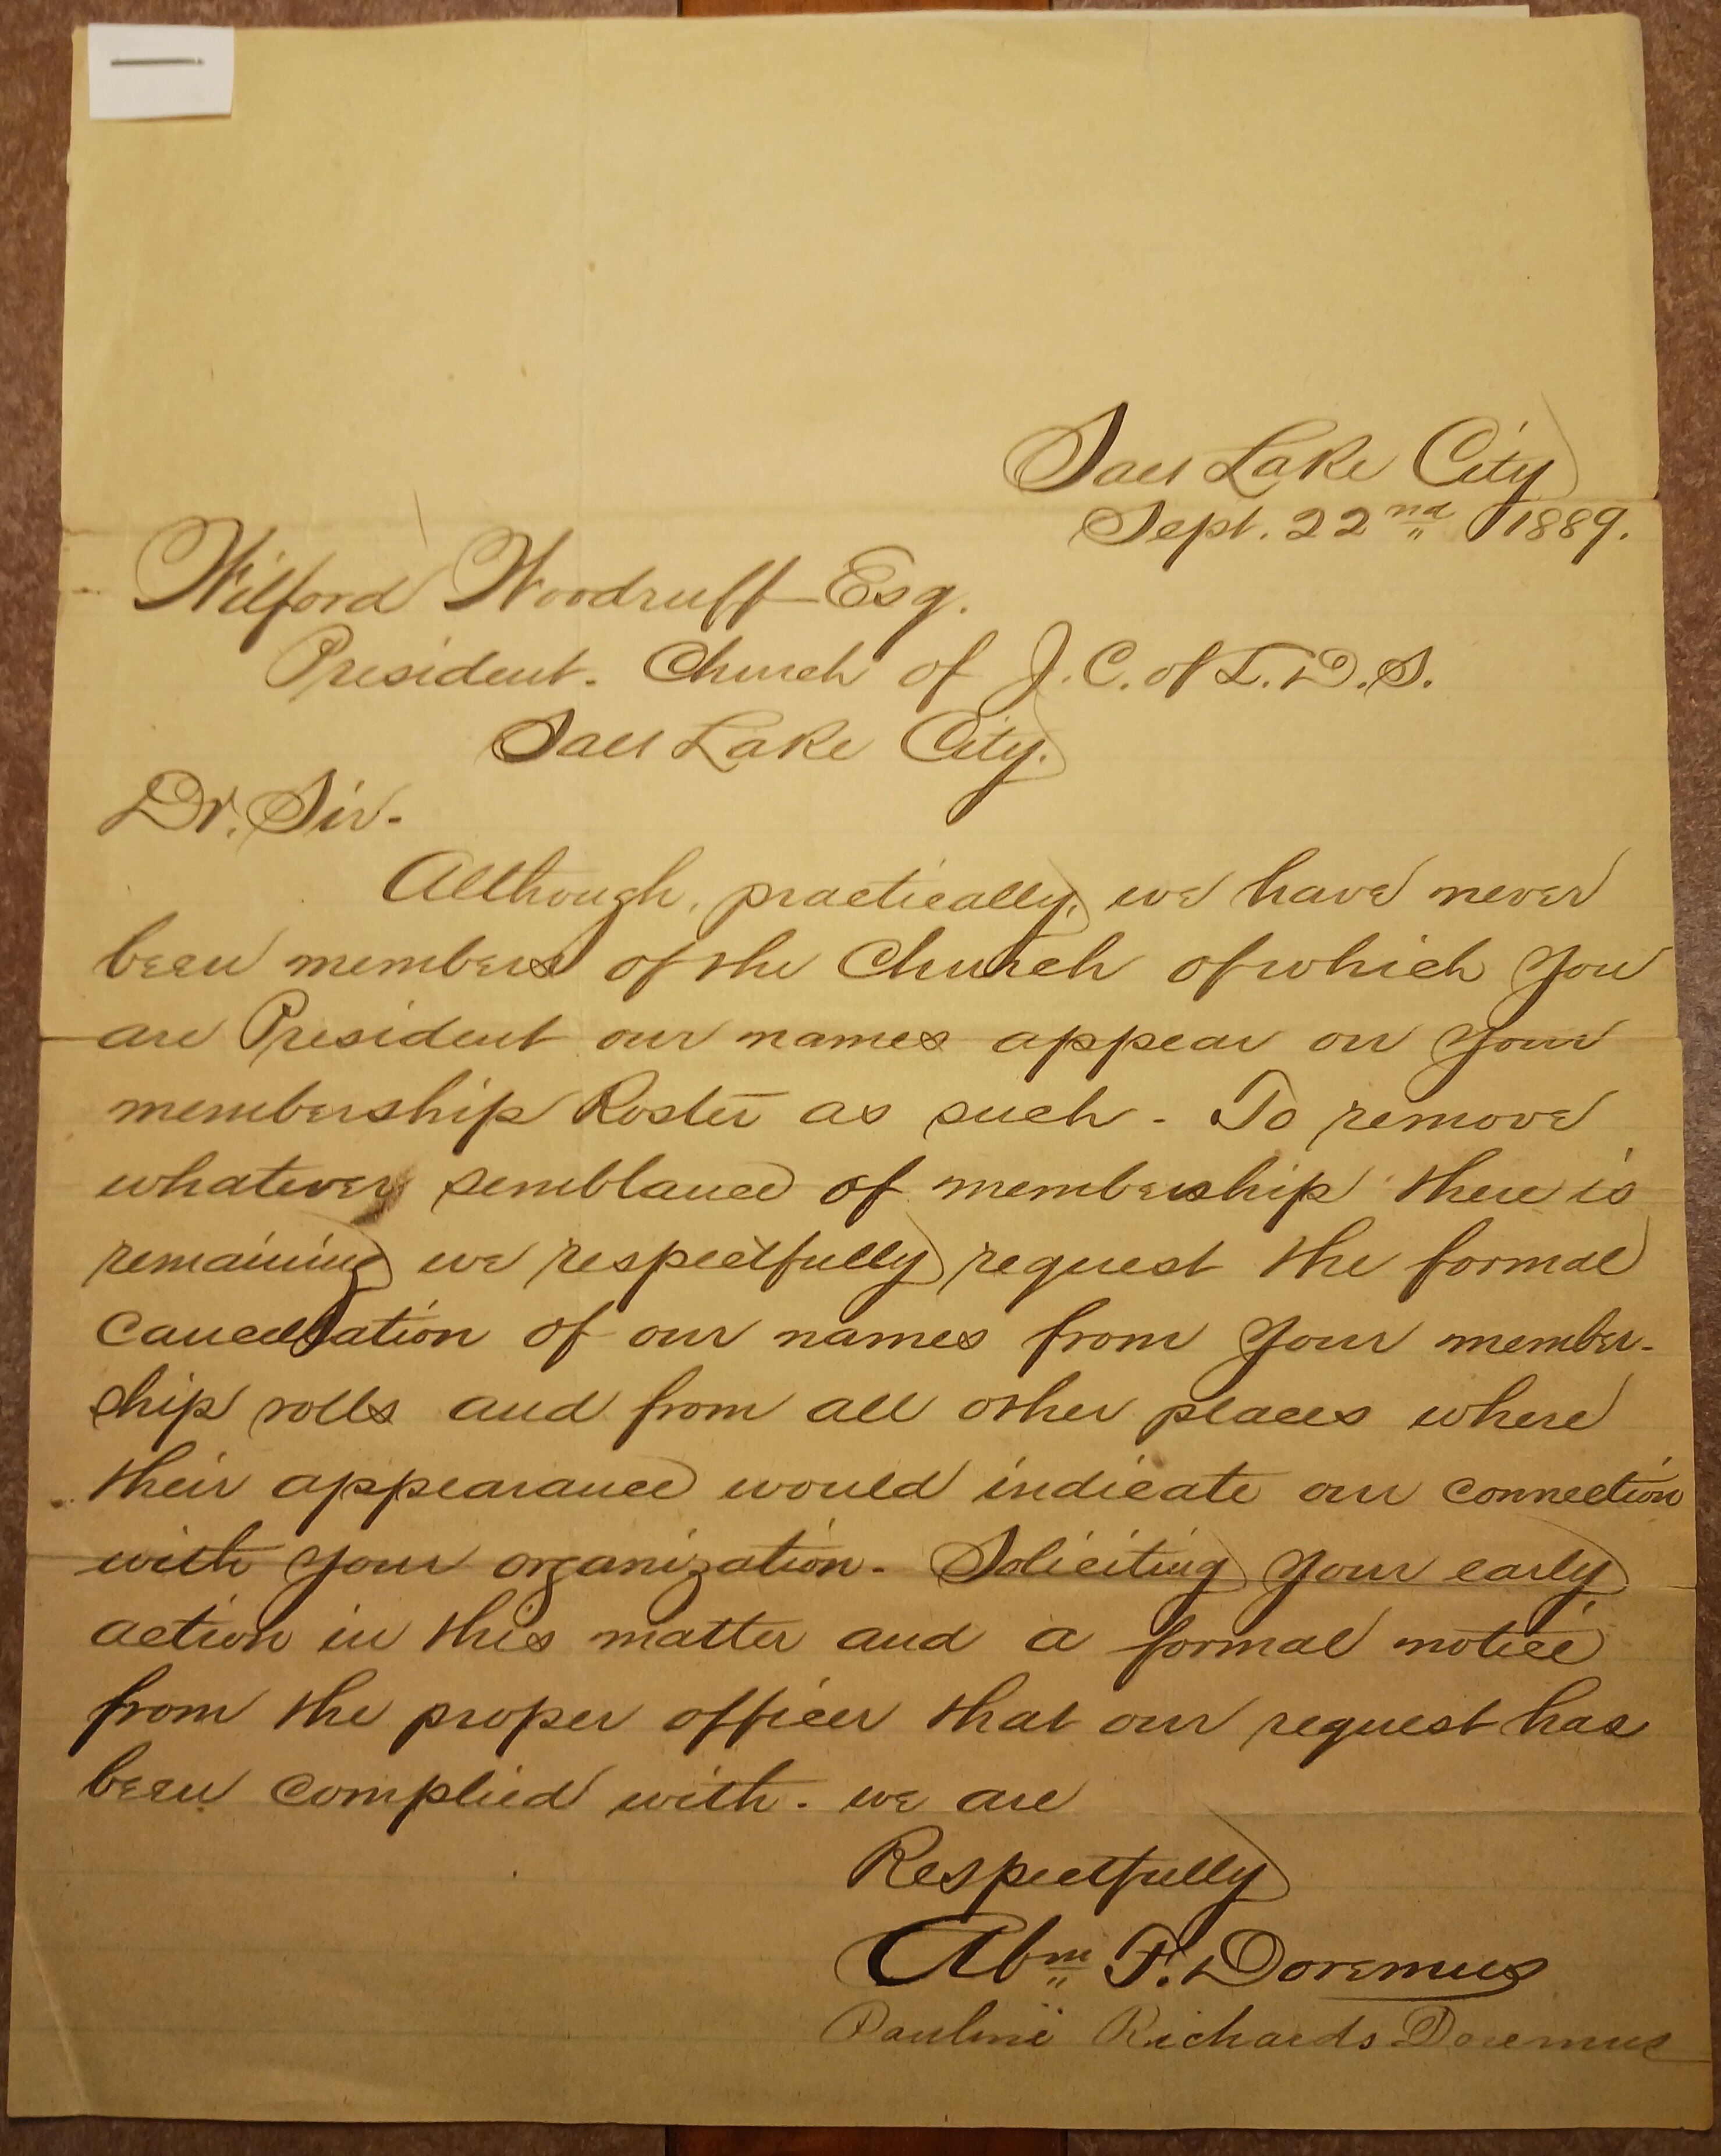 Salt Lake City
Sept. 22nd 1889.
Wilford Woodruff Esq.
President. Church of J. C. of L. D. S.
Salt Lake City.
Dr. Sir-
Although, practically, we have never
been members of the Church of which you
are President our names appear on your
membership Roster as such - To remove
whatever semblance of membership there is
remaining we respectfully request the formal
cancellation of our names from your member-
ship rolls and from all other places where
their appearance would indicate our connection
with your organization - Soliciting your early
action in this matter and a formal notice
from the proper officer that our request has
been complied with. we are
Respectfully
Abm F. Doremus
Pauline Richards Doremus